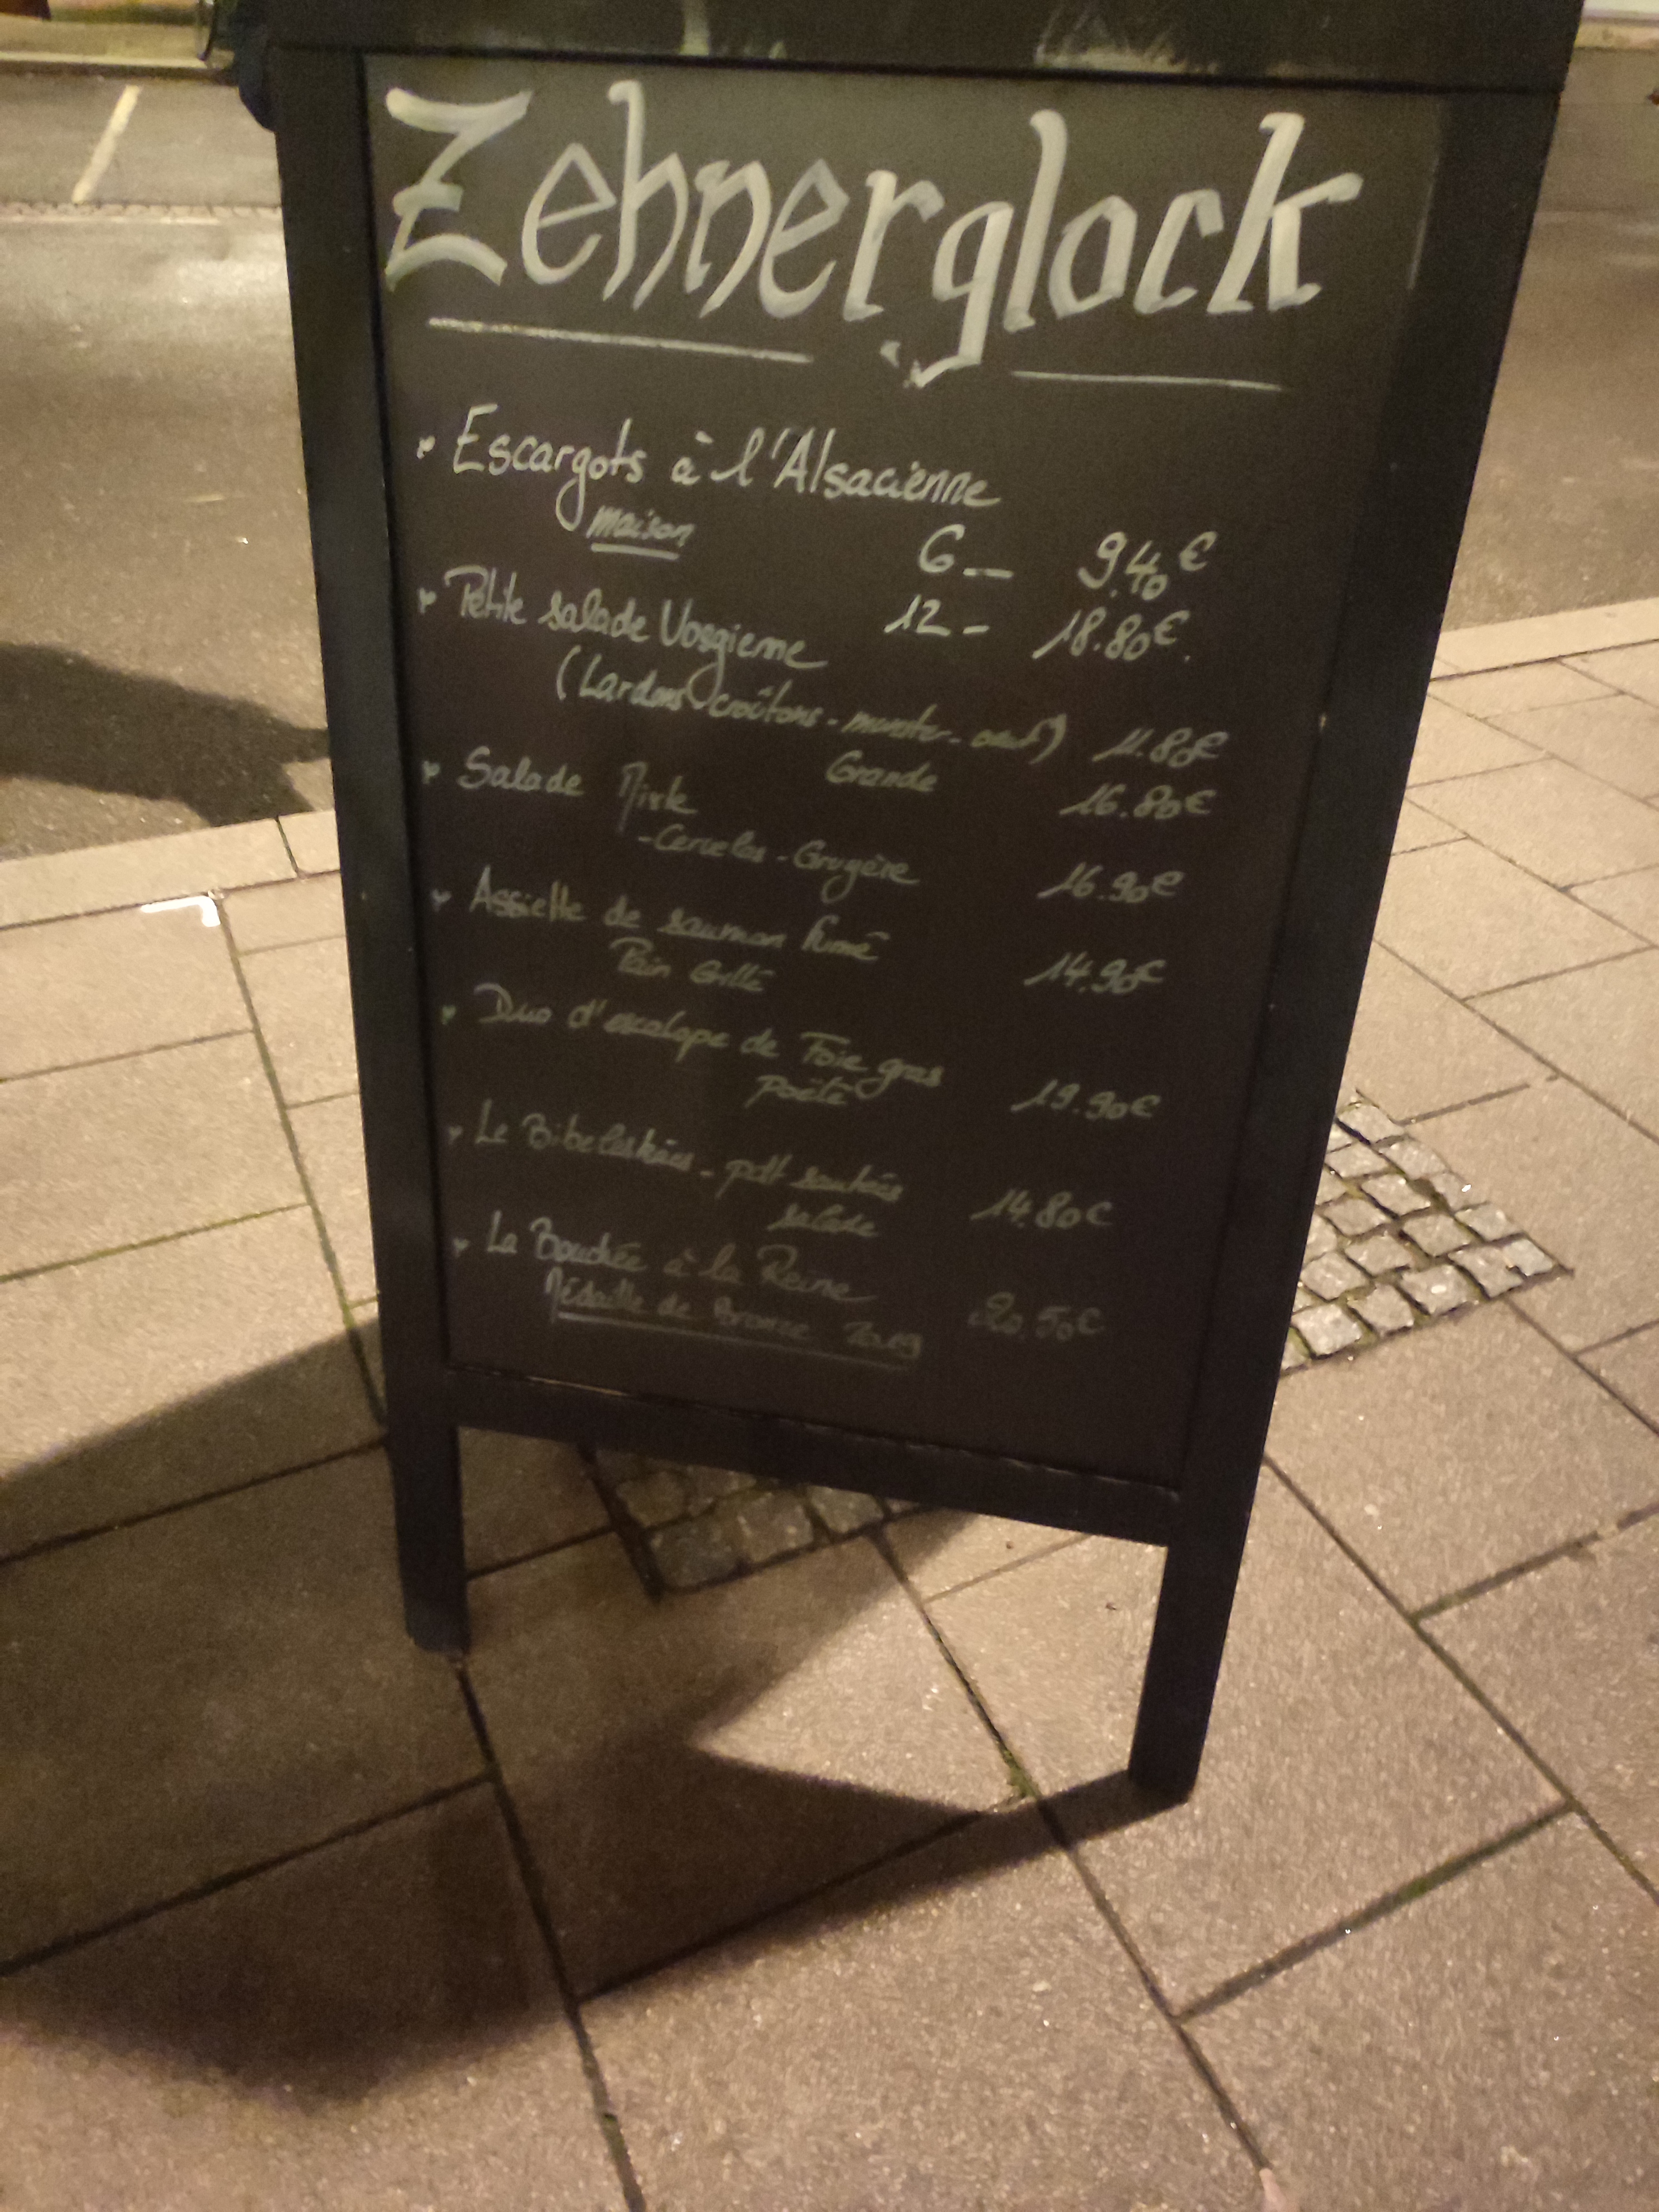 Zehnerglock
Escargots à l'Alsacienne
maison 6 - 9.40€
12 - 18.80€.
Petite salade Vosgienne
(Lardons-croûtons-munster-oeuf) 11.80€
Grande 16.80€
Salade Mixte
-Cervelas-Gruyère 16.90€
Assiette de saumon fumé
Pain Grillé 14.90€
Duo d'escalope de Foie gras
poêlé 19.90€
Le Bibeleskäes - pdt sautées
salade 14.80€
La Bouchée à la Reine
Médaille de Bronze 20.50€